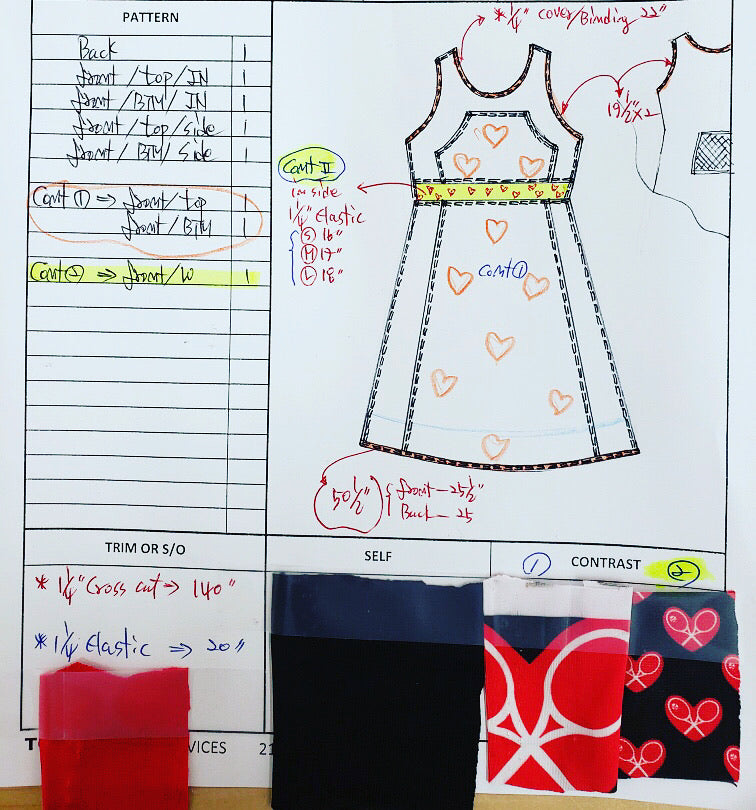 PATTERN
Back 1
front/top/IN 1
front/BTM/IN 1
front/top/side 1
front/BTM/side 1
Cont ① ⇒ front/top 1
front/BTM 1
Cont② ⇒ front/W 1
*1/4" cover/Binding 22"
19 1/2" x 2
Cont II
inside
1 1/4" Elastic
Ⓢ 16"
Ⓜ 17"
Ⓛ 18"
Cont①
50 1/2"
front - 25 1/2"
Back - 25
TRIM OR S/O
SELF
① CONTRAST ②
* 1 1/4" Cross cut → 140"
* 1 1/4 Elastic ⇒ 20"
VICES 21